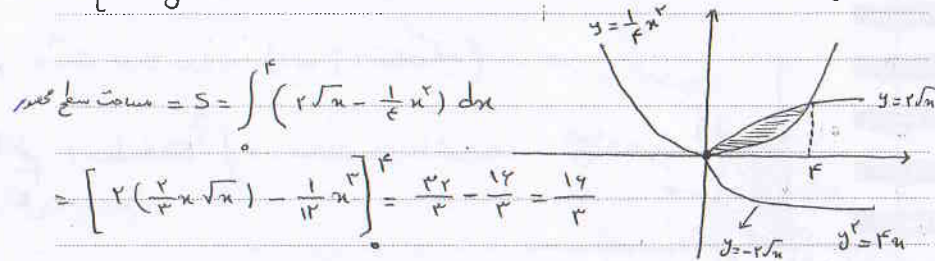 مساحت سطح محصور = S = ∫₀^۴ (۲√x - ۱/۴ x^۲) dx
= [۲(۲/۳ x√x) - ۱/۱۲ x^۳]₀^۴ = ۳۲/۳ - ۱۶/۳ = ۱۶/۳
y = ۱/۴ x^۲
y = ۲√x
۴
y = -۲√x
y^۲ = ۴x